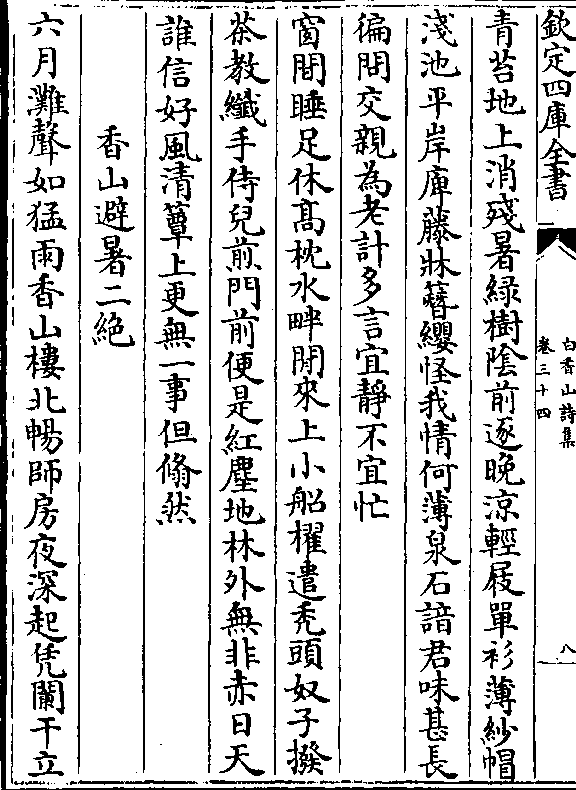 欽定四庫全書
白香山詩集
卷三十四
八
青苔地上消殘暑綠樹陰前逐晚涼輕屐單衫薄紗帽
淺池平岸庳藤牀簪纓怪我情何薄泉石諳君味甚長
徧問交親為老計多言宜靜不宜忙
窗間睡足休髙枕水畔閒來上小船櫂遣秃頭奴子撥
茶教纖手侍兒煎門前便是紅塵地林外無非赤日天
誰信好風清簟上更無一事但翛然
香山避暑二絶
六月灘聲如猛雨香山樓北暢師房夜深起凭闌干立